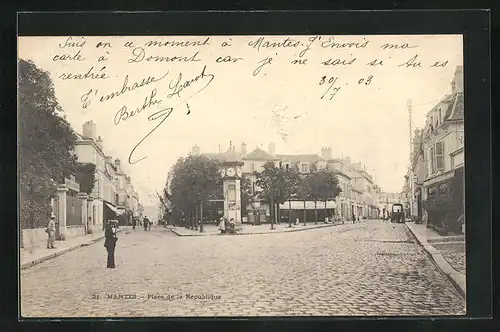 Suis en ce moment à Mantes. J'Envois ma
carte à Domont car je ne sais si tu es
rentrée
T'embrasse
30/7 03
Berthe
21. MANTES - Place de la République